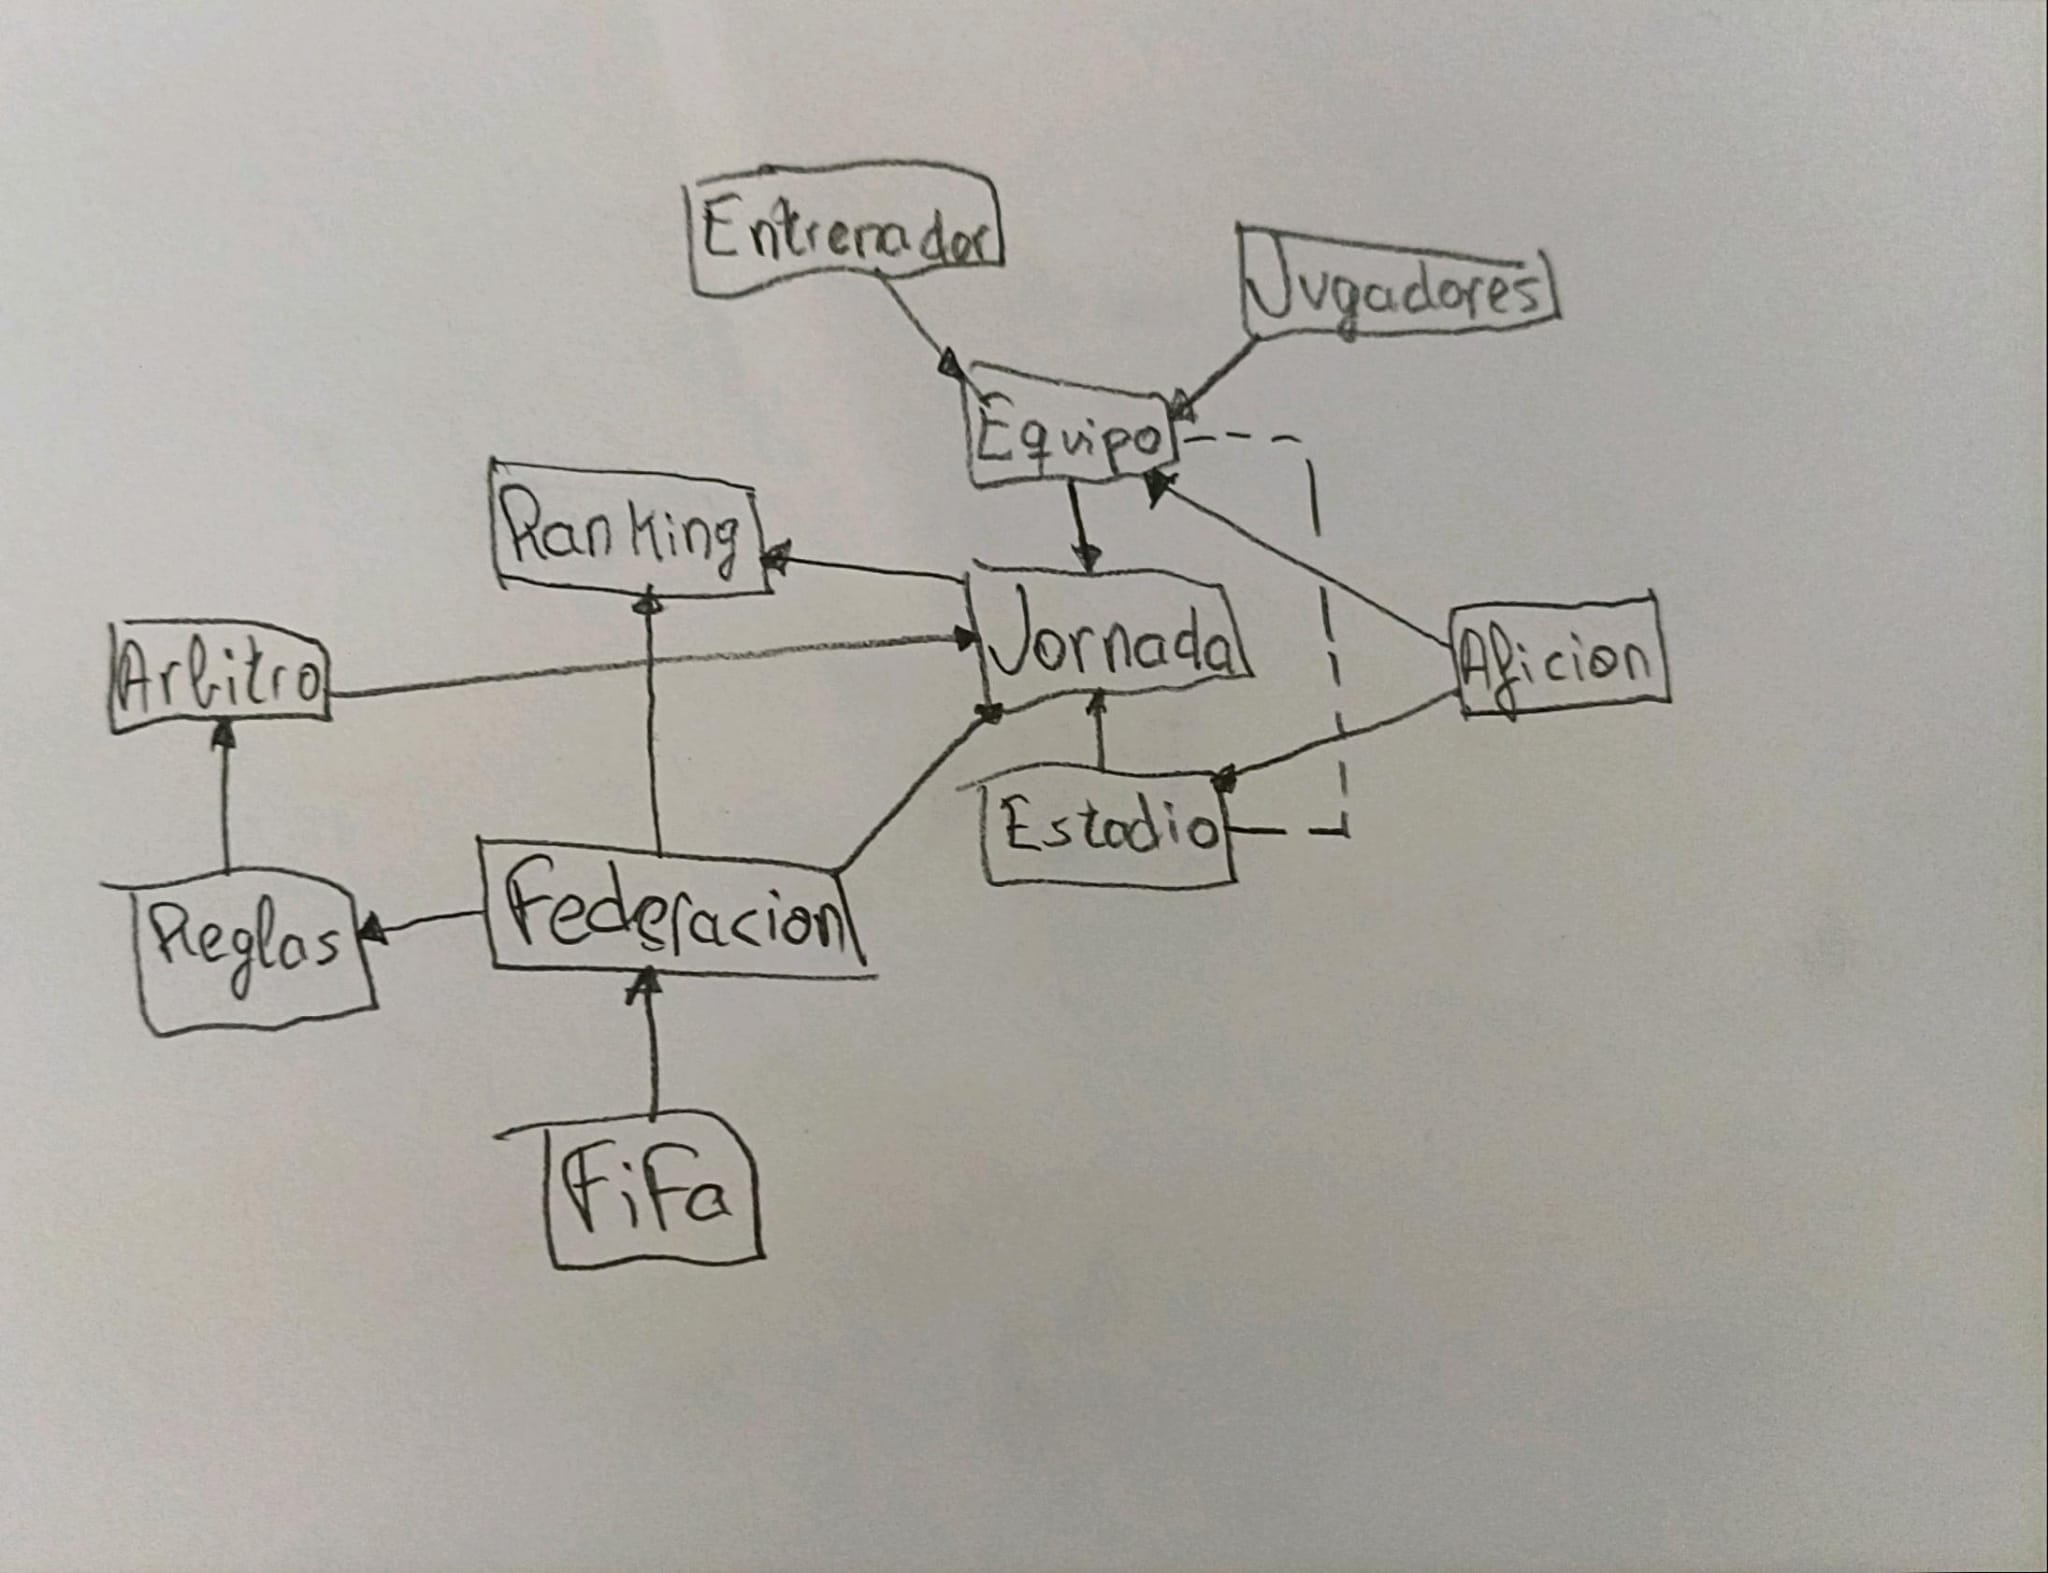 Entrenador
Jugadores
Equipo
Ranking
Jornada
Arbitro
Aficion
Estadio
Federacion
Reglas
FiFa